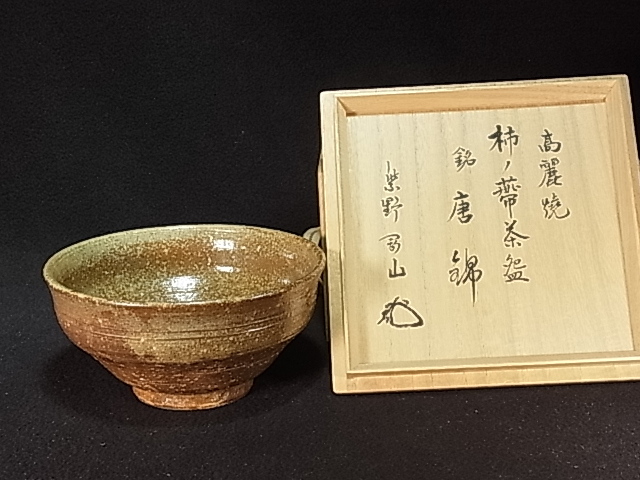 高麗焼
柿ノ蔕茶盌
銘 唐錦
紫野 山